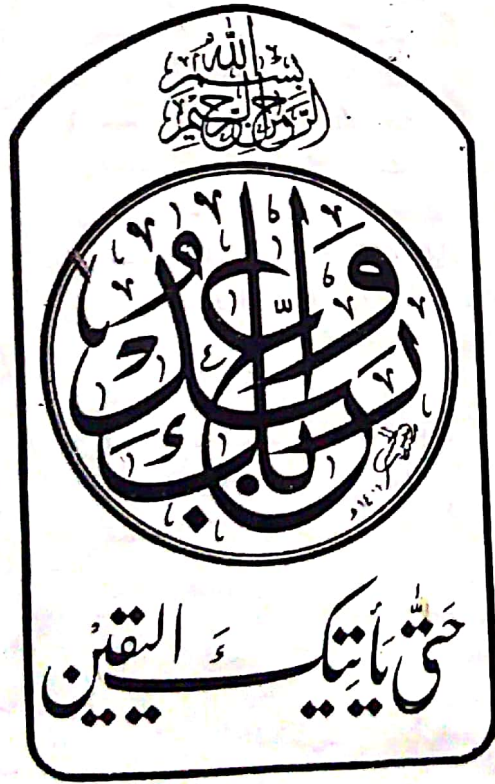 بسم الله
الرحمن الرحيم
واعبد ربك
١٤٠١ھ
حَتّٰى يَأتِيَكَ اليَقِيْن